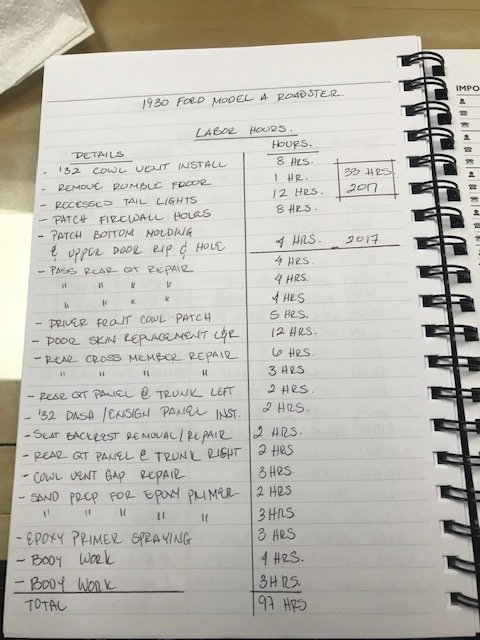 1930 FORD MODEL A ROADSTER.
LABOR HOURS.
DETAILS HOURS.
- '32 COWL VENT INSTALL 8 HRS.
- REMOVE RUMBLE FLOOR 1 HR. 33 HRS
- RECESSED TAIL LIGHTS 12 HRS. 2017
- PATCH FIREWALL HOLES 8 HRS.
- PATCH BOTTOM MOLDING
& UPPER DOOR RIP & HOLE 4 HRS. 2017
- PASS REAR QT REPAIR 4 HRS.
" " " " 4 HRS.
" " " " 4 HRS
- DRIVER FRONT COWL PATCH 5 HRS.
- DOOR SKIN REPLACEMENT L&R 12 HRS.
- REAR CROSS MEMBER REPAIR 6 HRS.
" " " " 3 HRS.
- REAR QT PANEL @ TRUNK LEFT 2 HRS.
- '32 DASH/ENSIGN PANEL INST. 2 HRS.
- SEAT BACKREST REMOVAL/REPAIR 2 HRS.
- REAR QT PANEL @ TRUNK RIGHT 2 HRS
- COWL VENT GAP REPAIR 3HRS
- SAND PREP FOR EPOXY PRIMER 2 HRS
" " " " " 3HRS
- EPOXY PRIMER SPRAYING 3 HRS
- BODY WORK 4 HRS.
- BODY WORK 3HRS.
TOTAL 97 HRS
IMPO